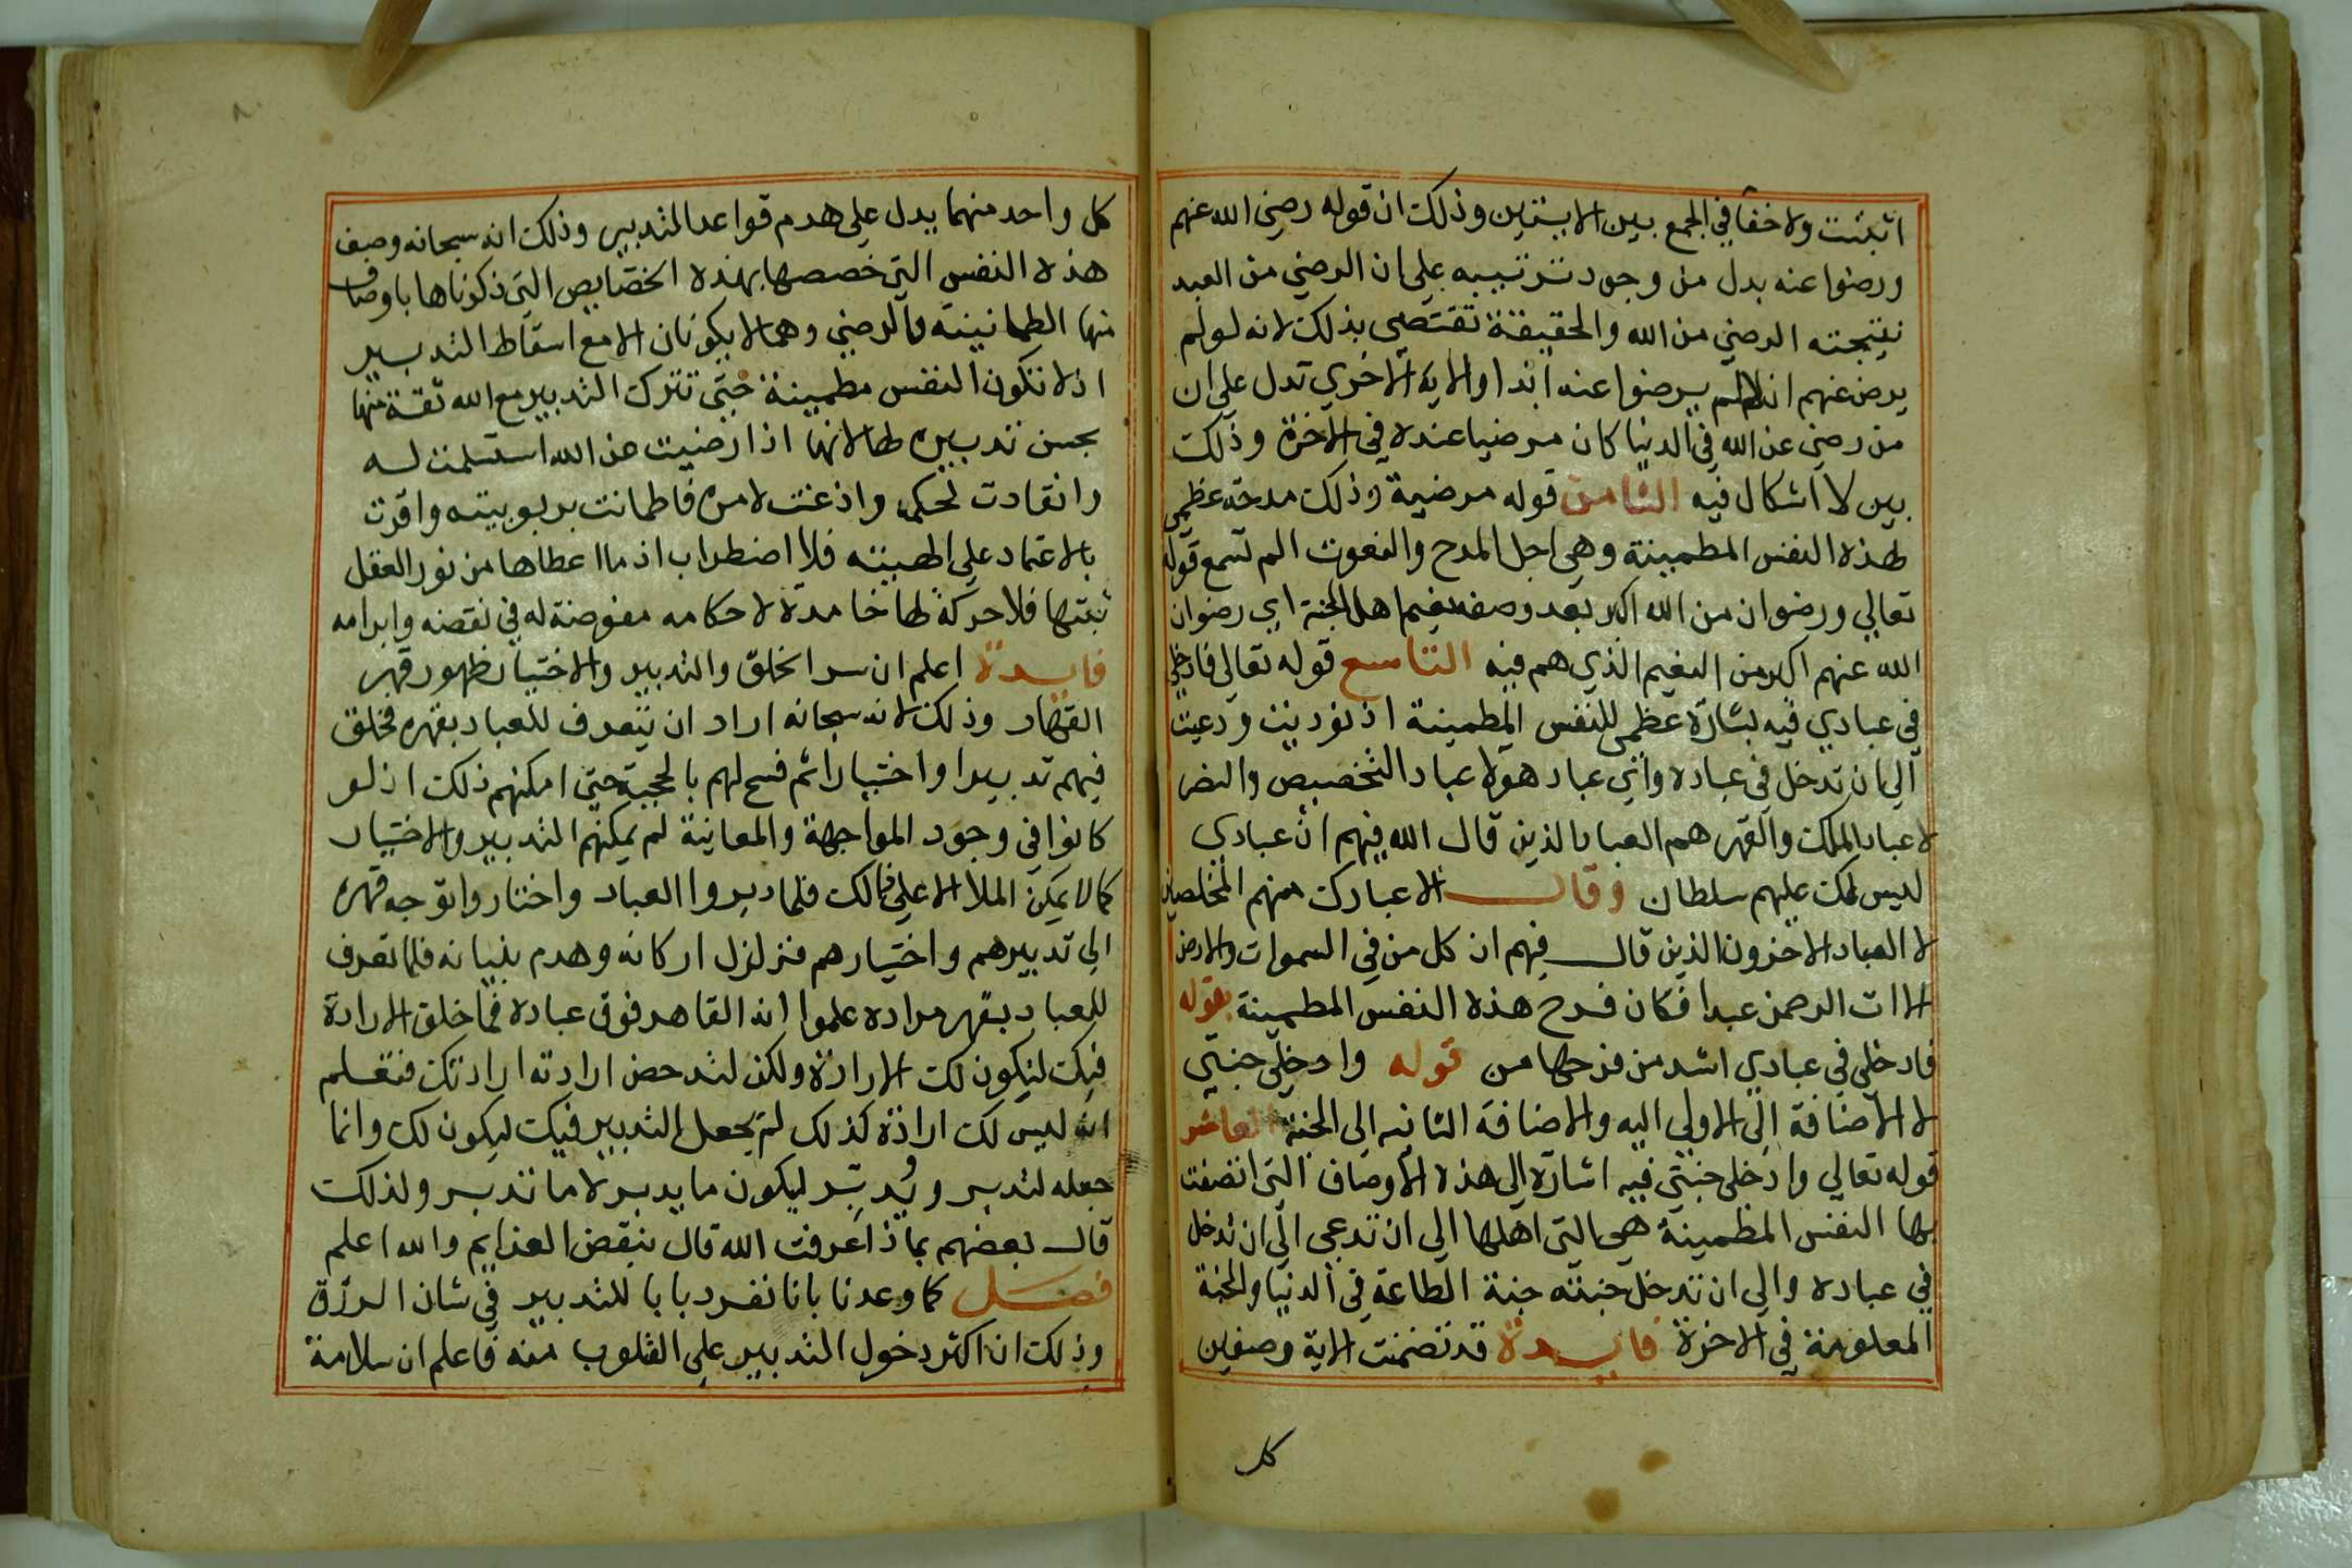 اثبتت ولا خفا في الجمع بين الايتين وذلك ان قوله رضي الله عنهم
ورضوا عنه يدل من وجود ترتيبه علي ان الرضي من العبد
نتيجته الرضي من الله والحقيقة تقتضي بذلك لانه لو لم
يرض عنهم اولا لم يرضوا عنه ابدا والاية الاخري تدل علي ان
من رضي عن الله في الدنيا كان مرضيا عنده في الاخرة وذلك
بين لا اشكال فيه الثامن قوله مرضية وذلك مدحة عظمي
لهذه النفس المطمينة وهي اجل المدح والنعوت الم تسمع قوله
تعالي ورضوان من الله اكبر بعد وصفه نعيم اهل الجنة اي رضوان
الله عنهم اكبر من النعيم الذي هم فيه التاسع قوله تعالي فادخلي
في عبادي فيه بشارة عظمي للنفس المطمينة اذ نوديت ودعيت
الي ان تدخل في عباده واي عباد هولا عباد التخصيص والنصر
لا عباد الملك والقهر هم العباد الذين قال الله فيهم ان عبادي
ليس لك عليهم سلطان وقال الا عبادك منهم المخلصين
لا العباد الاخرون الذين قال فيهم ان كل من في السموات والارض
الا ات الرحمن عبدا فكان فرح هذه النفس المطمينة بقوله
فادخلي في عبادي اشد من فرحها من قوله وادخلي جنتي
لا الاضافة الي الاولي اليه والاضافة الثانيه الي الجنة العاشر
قوله تعالي وادخلي جنتي فيه اشارة الي هذه الاوصاف التي اتصفت
بها النفس المطمينة هي التي اهلها الي ان تدعي الي ان تدخل
في عباده والي ان تدخل جنته جنة الطاعة في الدنيا والجنة
المعلومة في الاخرة فايدة قد تضمنت الاية وصفين
كل
كل واحد منهما يدل علي هدم قواعد التدبير وذلك انه سبحانه وصف
هذه النفس التي خصصها بهذه الخصايص التي ذكرناها باوصاف
منها الطمانينة والرضي وهما لا يكونان الا مع اسقاط التدبير
اذ لا تكون النفس مطمينة حتي تترك التدبير مع الله ثقة منها
بحسن تدبيره لها لانها اذا رضيت عن الله استسلمت له
وانقادت لحكمه واذعنت لامره فاطمانت بربوبيته واقرت
بالاعتماد علي الهيته فلا اضطراب اذ ما اعطاها من نور العقل
ثبتها فلا حركة لها خامدة لاحكامه مفوضة له في نقضه وابرامه
فايدة اعلم ان سر الخلق والتدبير والاختيار ظهور قهر
القهار وذلك لانه سبحانه اراد ان يتعرف للعباد بقهره فخلق
فيهم تدبيرا واختيارا ثم فسح لهم بالحجبة حتي امكنهم ذلك اذ لو
كانوا في وجود المواجهة والمعانية لم يمكنهم التدبير والاختيار
كما لا يمكن الملا الاعلي ذلك فلما دبروا العباد واختاروا توجه قهره
الي تدبيرهم واختيارهم فتزلزل اركانه وهدم بنيانه فلما تعرف
للعباد بقهر مراده علموا انه القاهر فوق عباده فما خلق الارادة
فيك ليكون لك الارادة ولكن لتدحض ارادته ارادتك فتعلم
انه ليس لك ارادة كذلك لم يجعل التدبير فيك ليكون لك وانما
جعله لتدبر ويُدبّر ليكون ما يدبر لا ما تدبر ولذلك
قال بعضهم بماذا عرفت الله قال بنقض العزايم والله اعلم
فصل كما وعدنا بانا نفرد بابا للتدبير في شان الرزق
وذلك ان اكثر دخول التدبير علي القلوب منه فاعلم ان سلامة